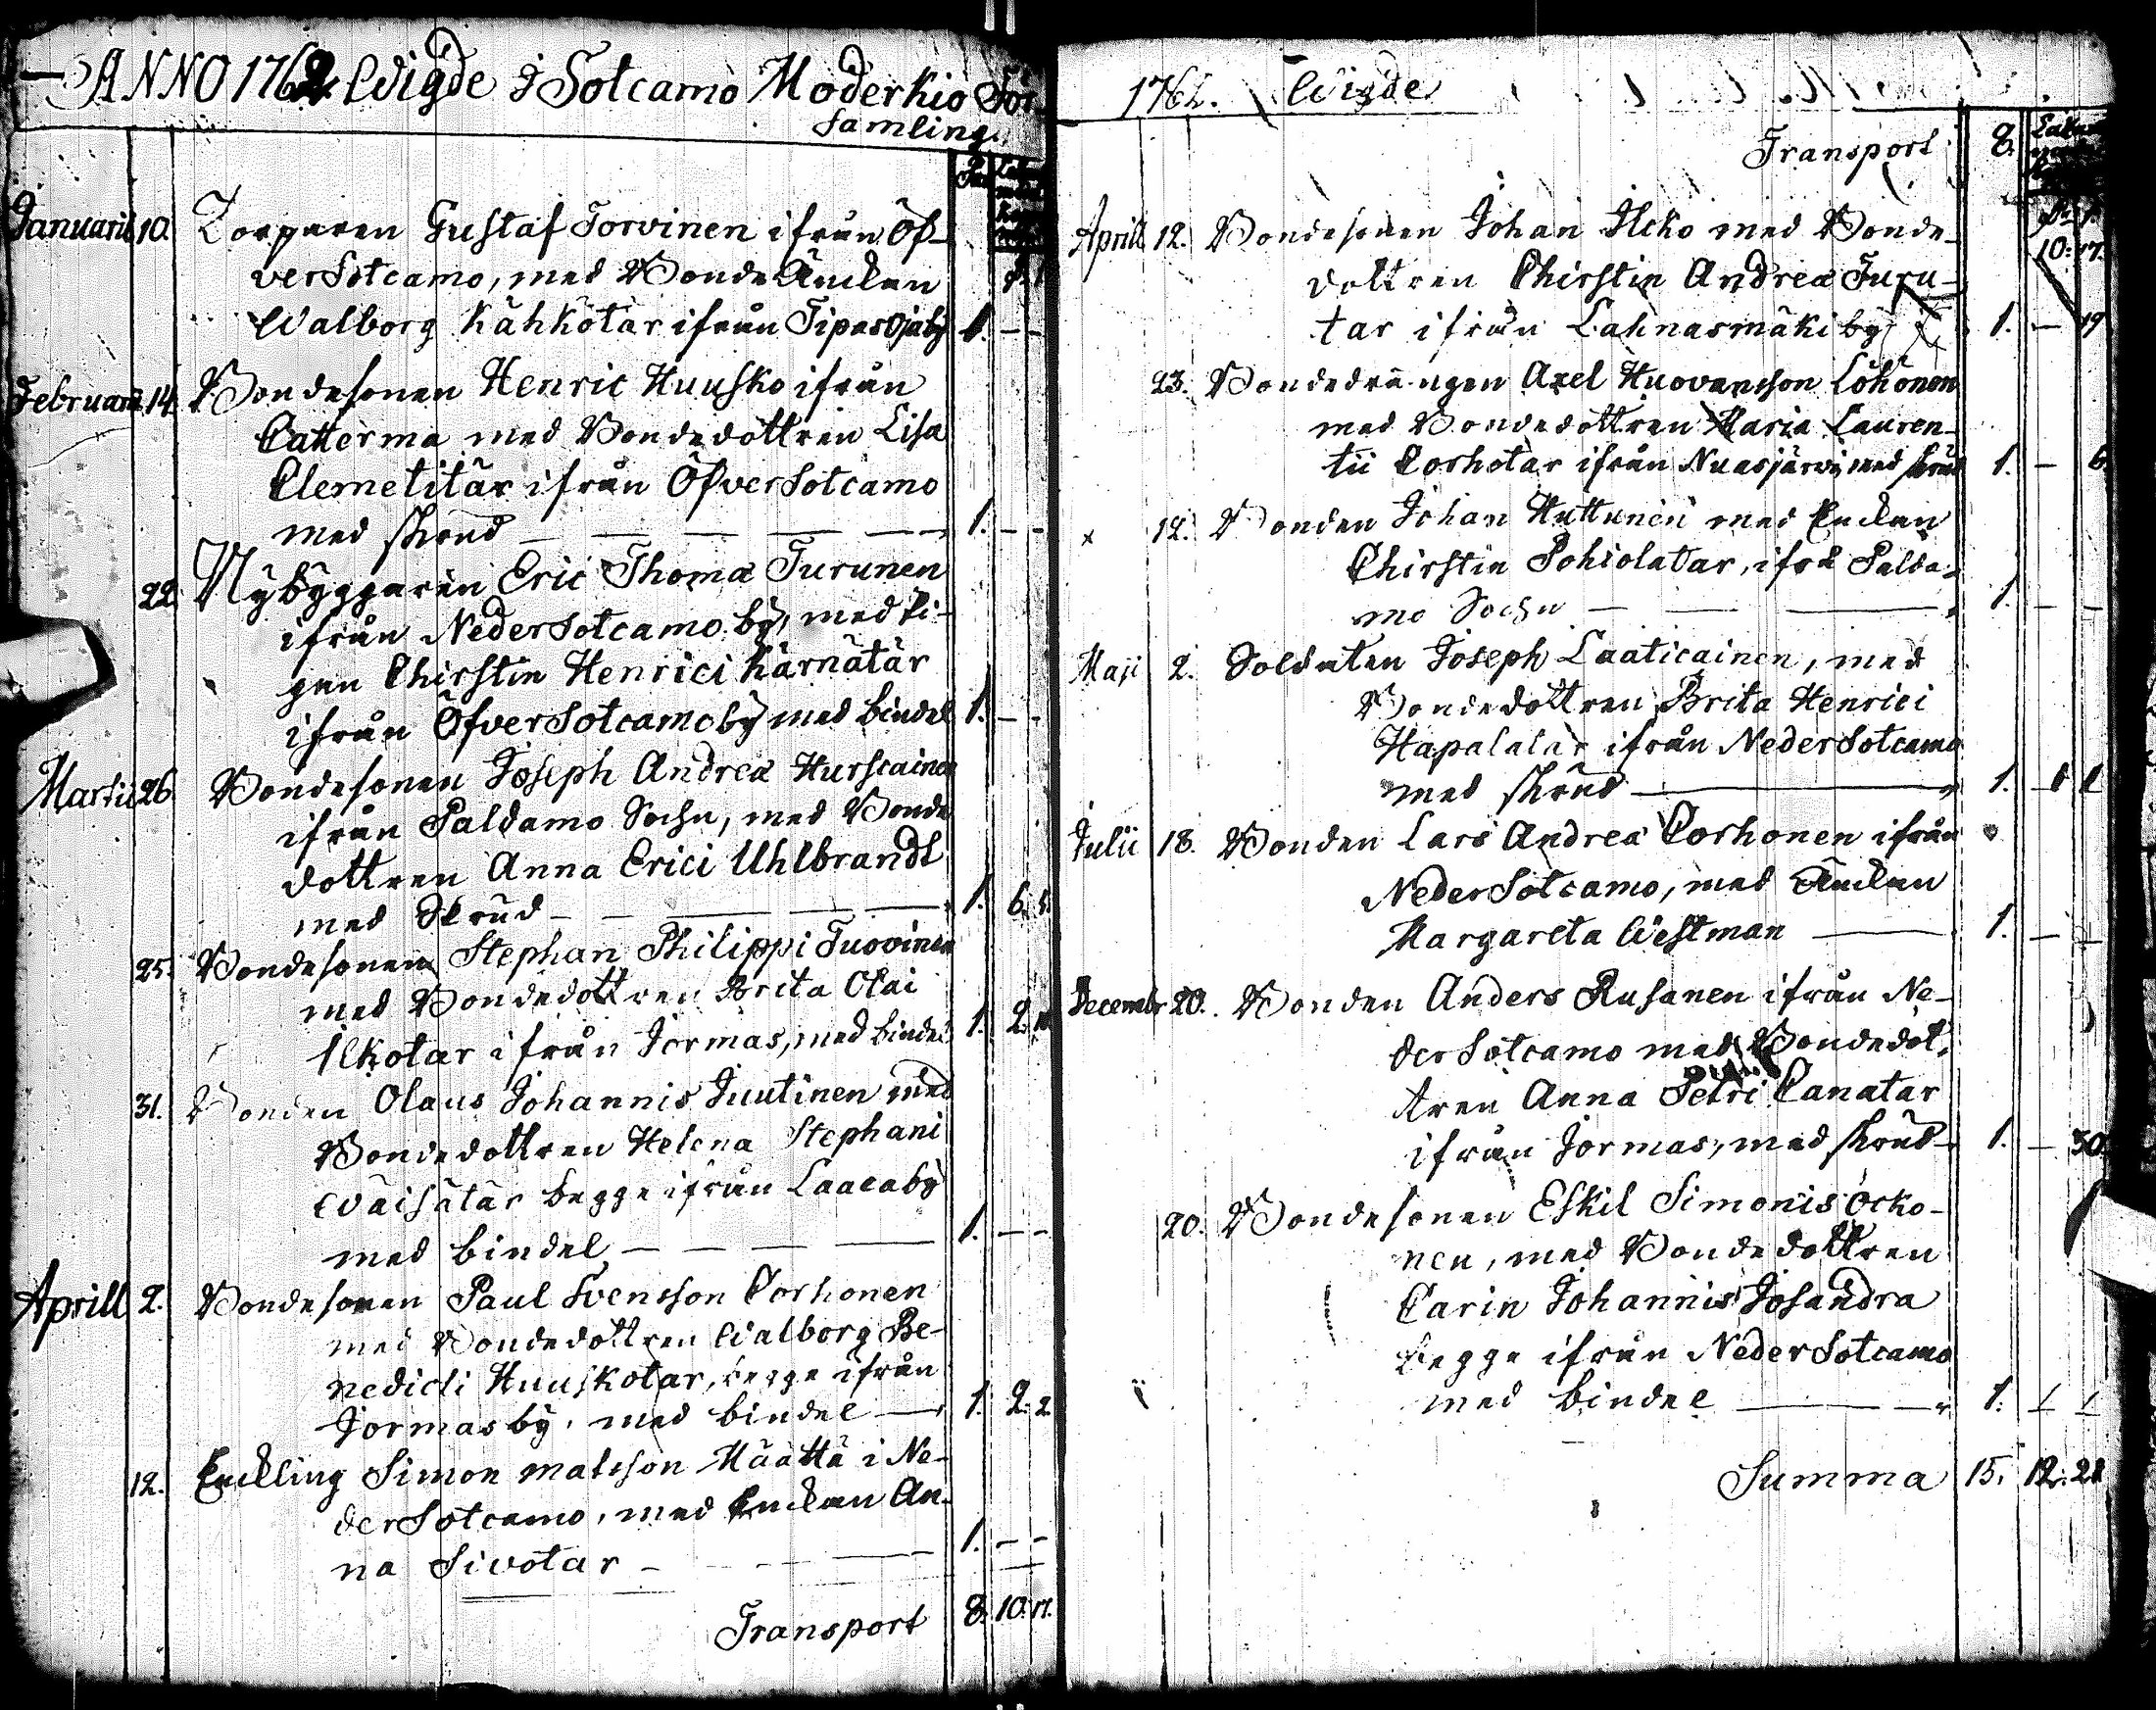 ANNO 1762 Wigde i Sotcamo Moderkio För-
samling.
Januarii 10. Torparen Gustaf Torvinen ifrån Öf-
verSotcamo, med Bonde Änckan
Walborg Kähkötär ifrån Tipasoja by 1. - -
Februarii 14. Bondesonen Henric Huusko ifrån
Catterma med Bondedottren Lisa
Clemetitär ifrån ÖfverSotcamo
med skrud 1. - -
22. Nybyggaren Eric Thomæ Turunen
ifrån NederSotcamo by, med Pi-
gan Chirstin Henrici Kärnätär
ifrån ÖfverSotcamo by med bindel 1. - -
Martii 26. Bondesonen Joseph Andreæ Hurscainen
ifrån Paldamo Sochn, med Bonde
dottren Anna Erici Uhlbrandt
med Skrud 1. 6. 5.
25. Bondesonen Stephan Philippi Tuovinen
med Bondedottren Brita Olai
Ilkotar ifrån Jormas, med bindel 1. 2. 10
31. Bonden Olaus Johannis Juutinen med
Bondedottren Helena Stephani
Wäisätär begge ifrån Laaca by
med bindel 1. - -
Aprill 2. Bondesonen Paul Svensson Corhonen
med Bondedottren Walborg Be-
nedicti Huuskotar, begge ifrån
Jormas by, med bindel 1. 2. 2
12. Enckling Simon Matsson Määttä i Ne-
derSotcamo, med Enckan An-
na Sivotar 1. - -
Transport 8. 10. 17.
1762. Wigde
Transport 8.
10. 17.
Aprill 12. Bondesonen Johan Ilcko med Bonde-
dottren Chirstin Andreæ Juru-
tar ifrån Lahnasmäki by 1. - 19
23. Bondedrängen Axel Huovansson Löhönen
med Bondedottren Maria Lauren-
tii Corhotar ifrån Nuasjärvi, med skrud 1. - 6.
x 12. Bonden Johan Huttunen med Enckan
Chirstin Pohiolatar, ifrå Palda-
mo Sochn 1. - -
Maji 2. Soldaten Joseph Laaticainen, med
Bondedottren Brita Henrici
Hapalatar ifrån NederSotcamo
med skrud 1.
Julii 18. Bonden Lars Andreæ Corhonen ifrån
NederSotcamo, med Änckan
Margareta Westman 1. - -
Decembr 20. Bonden Anders Rusanen ifrån Ne-
derSotcamo med Bondedot-
tren Anna Petri Canatar
ifrån Jormas, med skrud 1. - 30.
20. Bondesonen Eskil Simonis Ocko-
nen, med Bondedottren
Carin Johannis Josandra
begge ifrån NederSotcamo
med bindel 1.
Summa 15. 12. 28